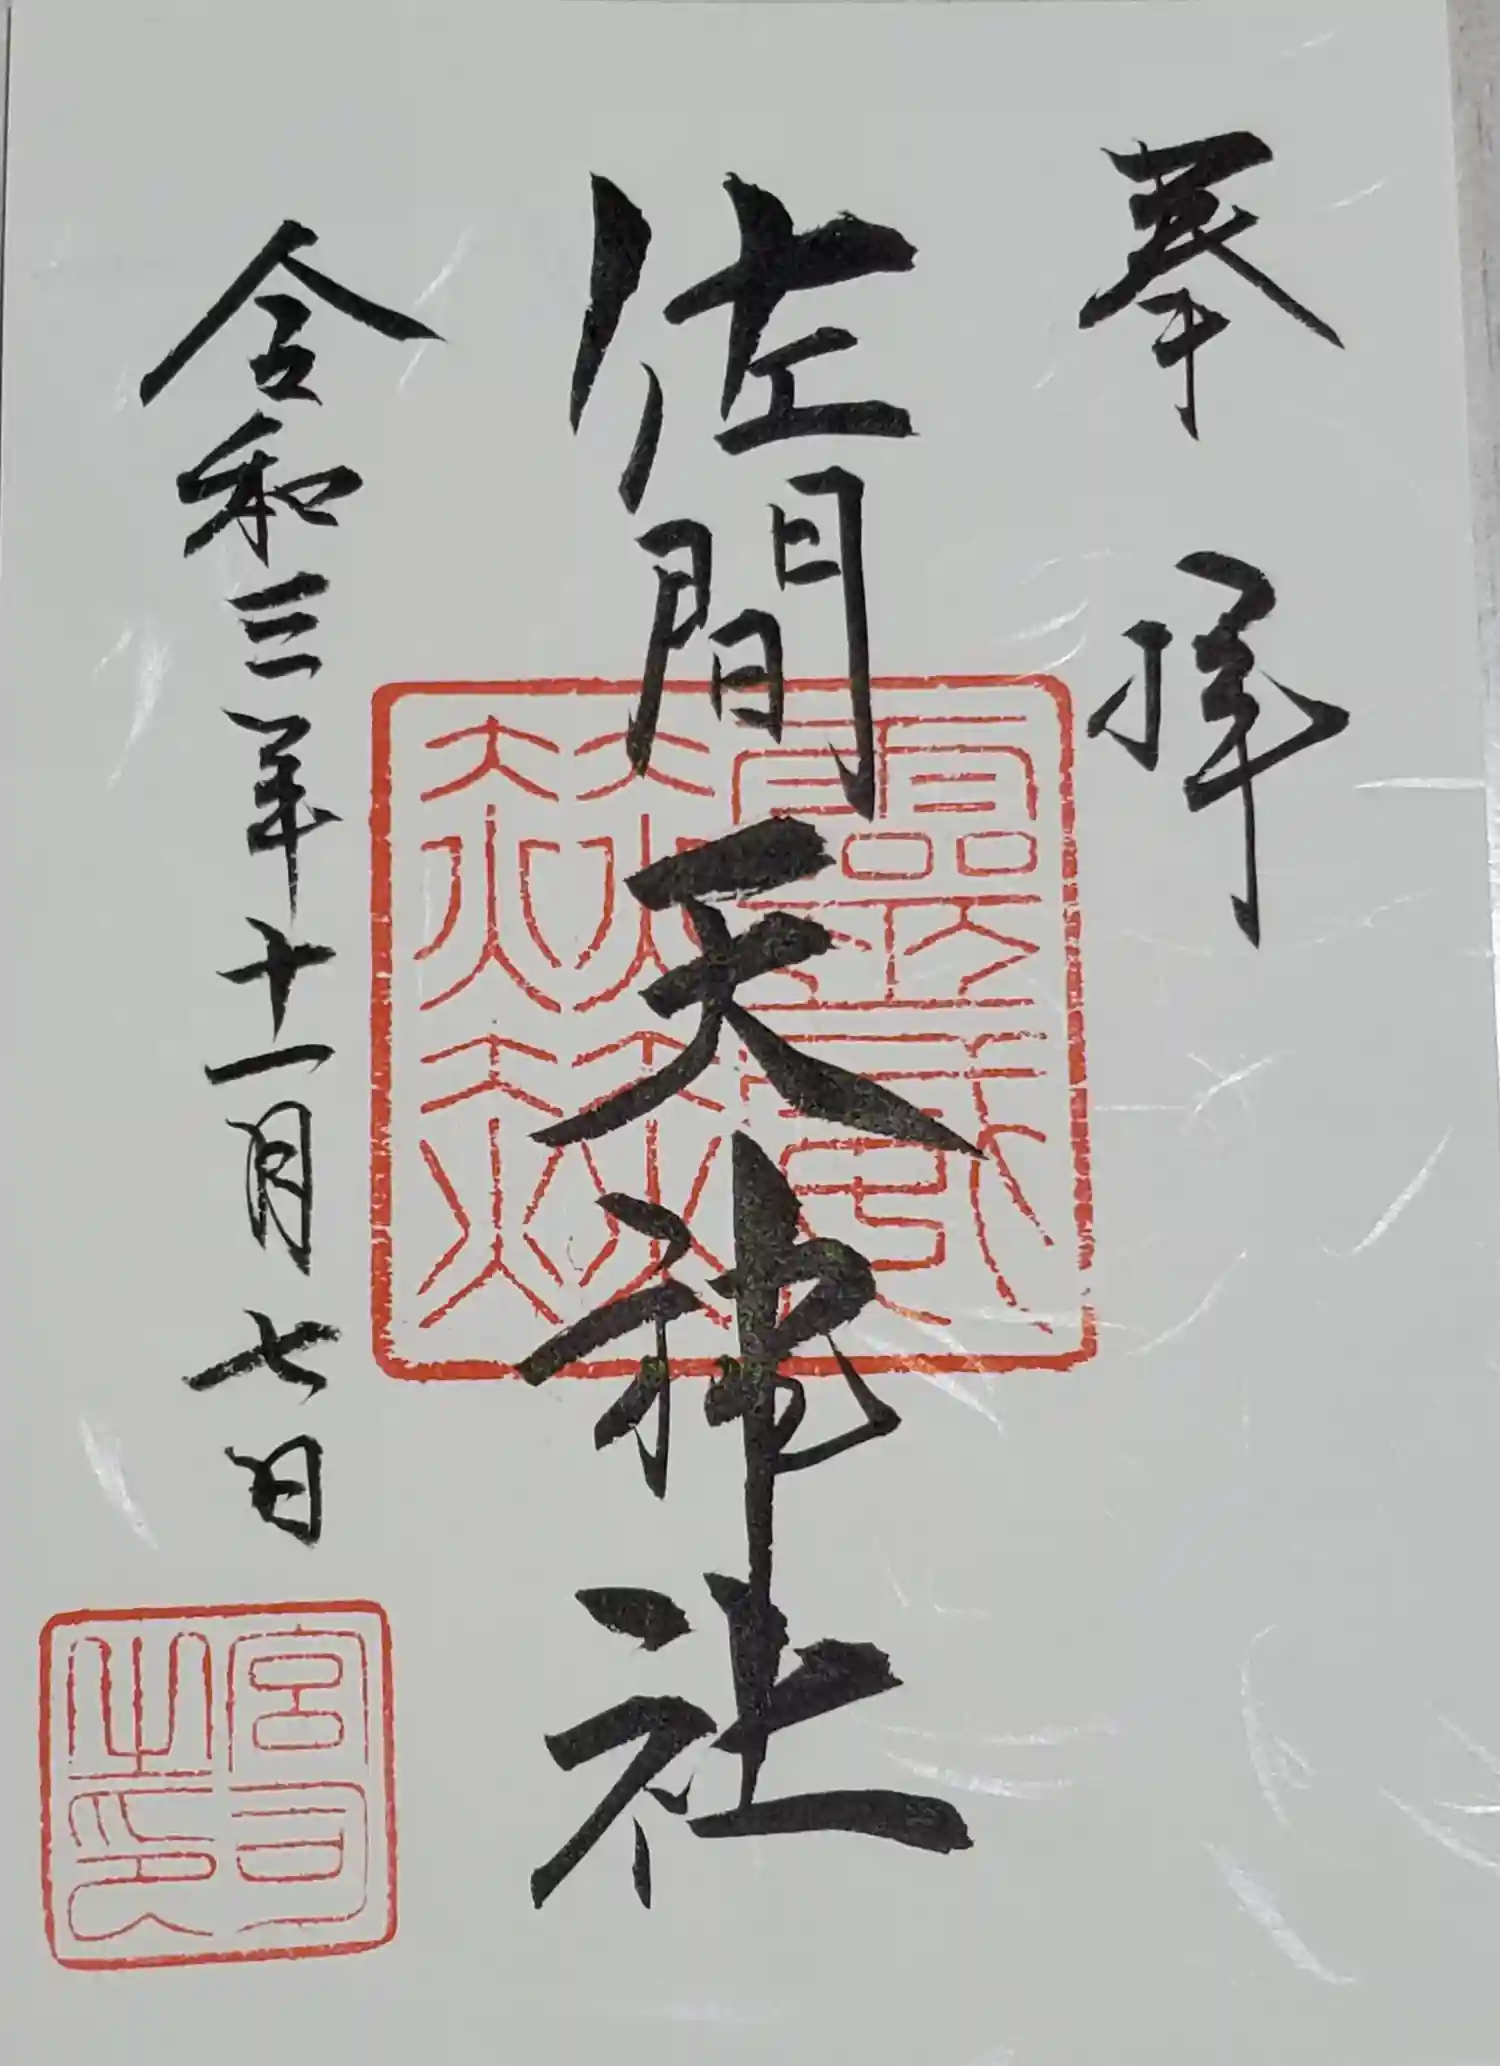 奉拝
佐間天神社
令和三年十一月七日
宮司之印